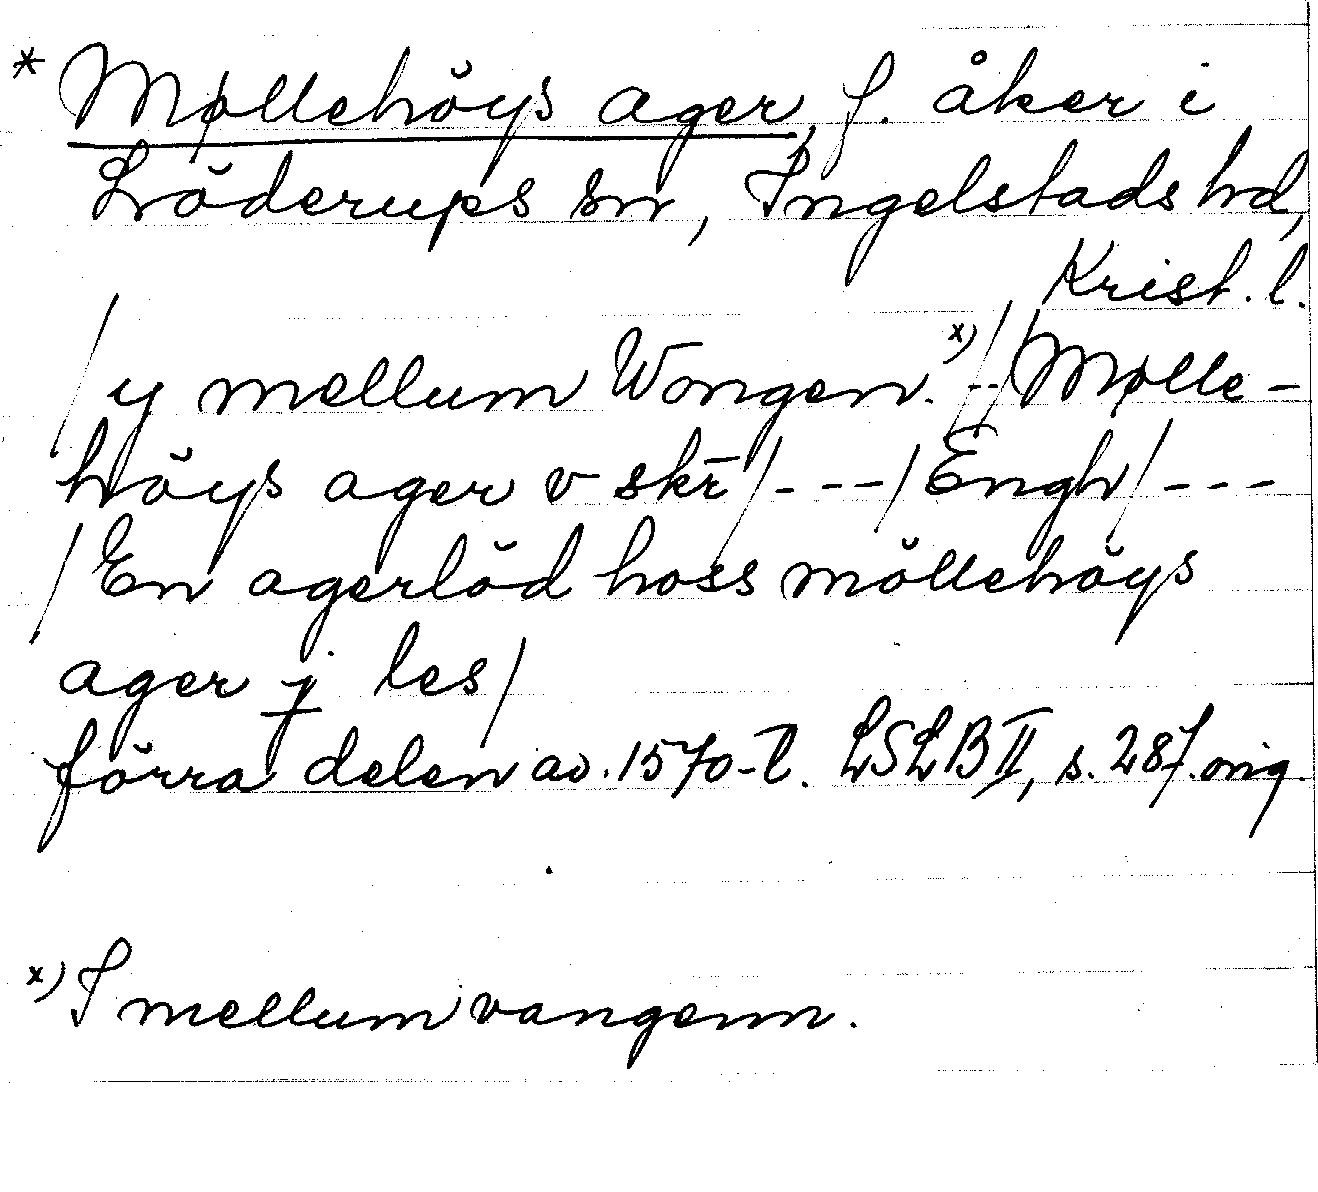 * Møllehöys ager, f. åker i
Löderups sn, Ingelstads hd,
Krist. l.
/ y mellum Wongen. x) /--/ Mølle-
höys ager v skr̄ / --- / Engh / ---
/ En agerlöd hoss möllehöys
ager j les /
förra delen av 1570-t. LSLB II, s. 287. orig.
x) I mellum vangenn.